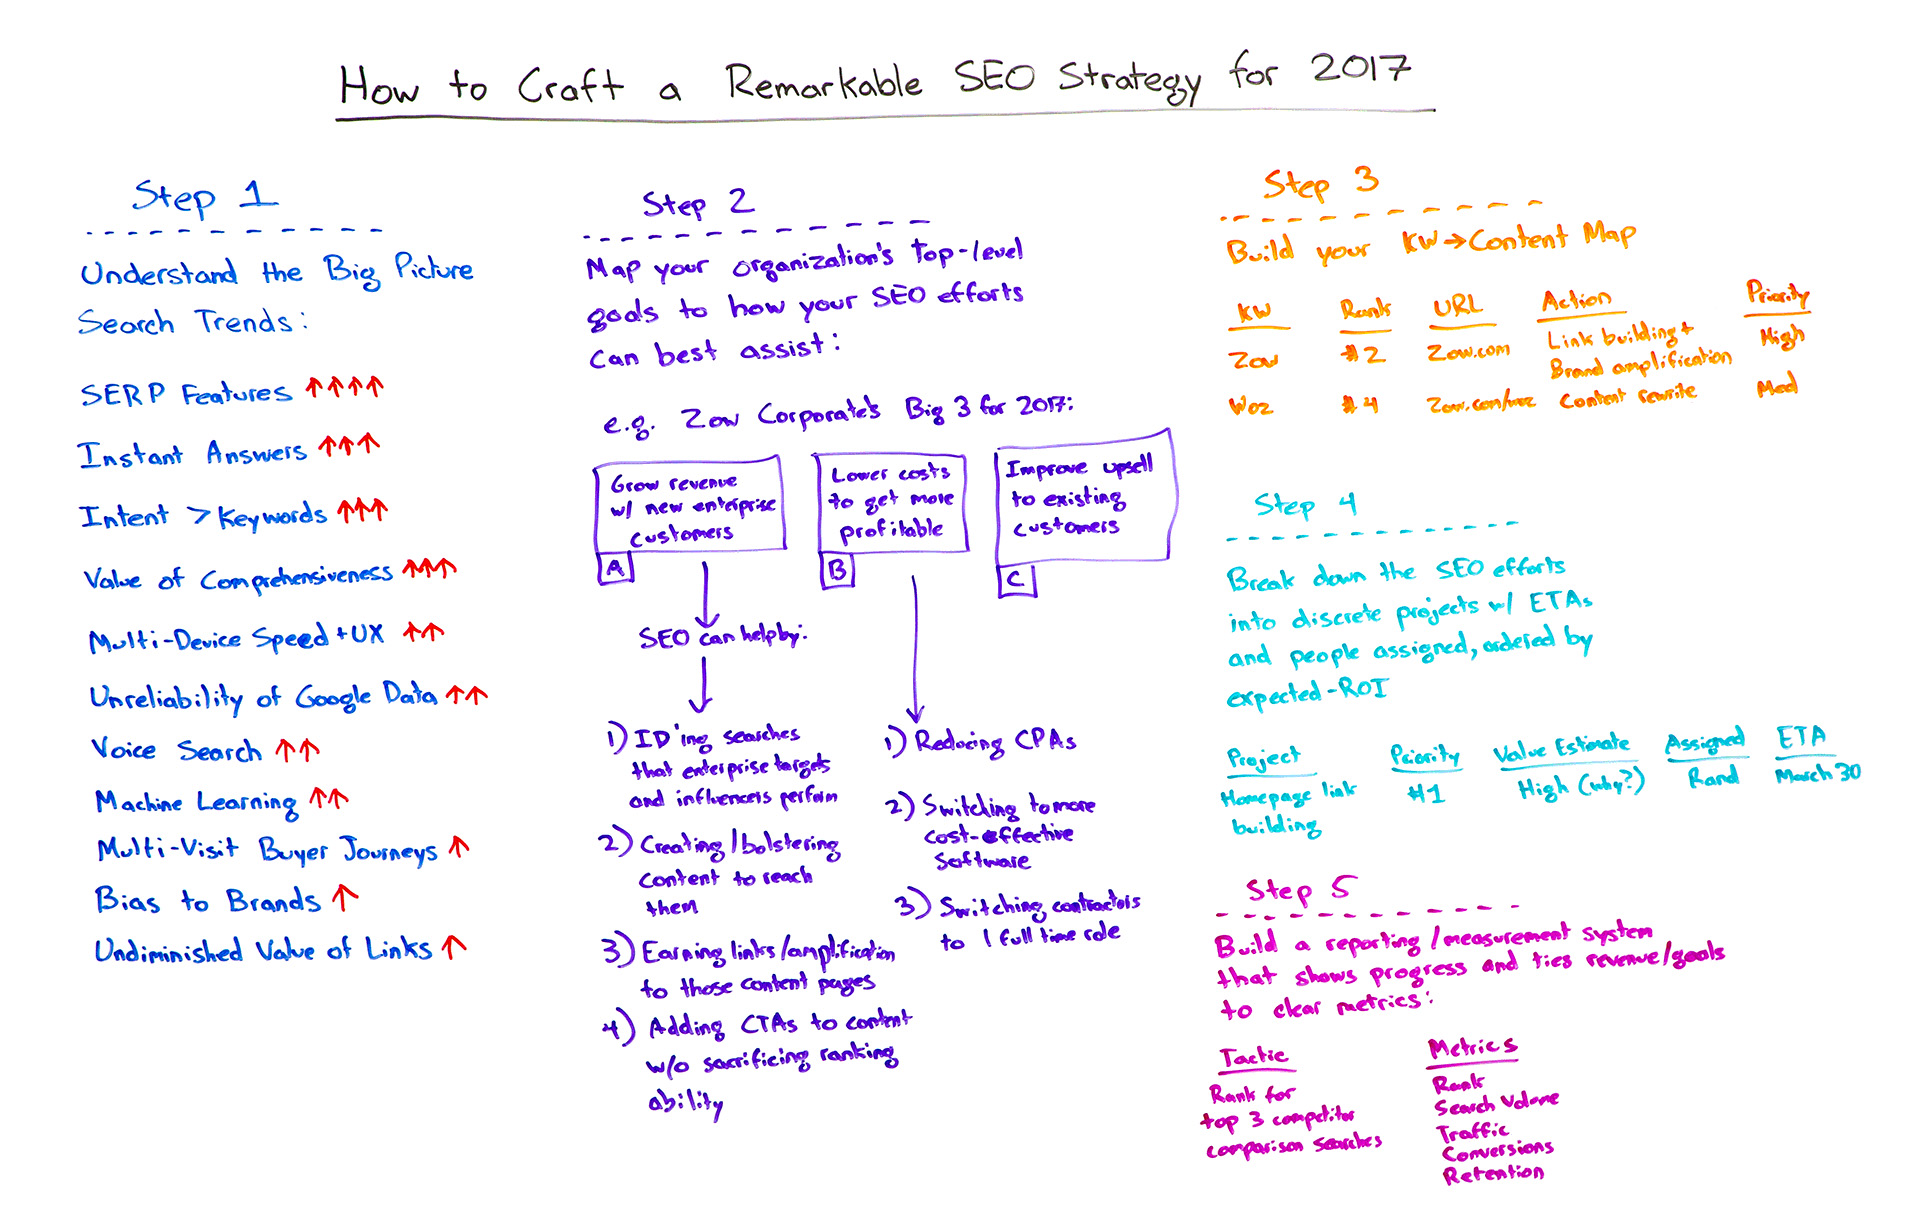 How to Craft a Remarkable SEO Strategy for 2017
Step 1
Understand the Big Picture
Search Trends:
SERP Features ↑↑↑↑
Instant Answers ↑↑↑
Intent > Keywords ↑↑↑
Value of Comprehensiveness ↑↑↑
Multi-Device Speed + UX ↑↑
Unreliability of Google Data ↑↑
Voice Search ↑↑
Machine Learning ↑↑
Multi-Visit Buyer Journeys ↑
Bias to Brands ↑
Undiminished Value of Links ↑
Step 2
Map your organization's top-level
goals to how your SEO efforts
can best assist:
e.g. Zow Corporate's Big 3 for 2017:
Grow revenue
w/ new enterprise
customers
A
Lower costs
to get more
profitable
B
Improve upsell
to existing
customers
C
SEO can help by:
1) ID'ing searches
that enterprise targets
and influencers perform
2) Creating/bolstering
content to reach
them
3) Earning links/amplification
to those content pages
4) Adding CTAs to content
w/o sacrificing ranking
ability
1) Reducing CPAs
2) Switching to more
cost-effective
software
3) Switching contractors
to 1 full time role
Step 3
Build your KW→Content Map
KW Rank URL Action Priority
Zow #2 Zow.com Link building + High
Brand amplification
Woz #4 Zow.com/woz Content rewrite Med
Step 4
Break down the SEO efforts
into discrete projects w/ ETAs
and people assigned, ordered by
expected-ROI
Project Priority Value Estimate Assigned ETA
Homepage link #1 High (why?) Rand March 30
building
Step 5
Build a reporting/measurement system
that shows progress and ties revenue/goals
to clear metrics:
Tactic
Rank for
top 3 competitor
comparison searches
Metrics
Rank
Search Volume
Traffic
Conversions
Retention